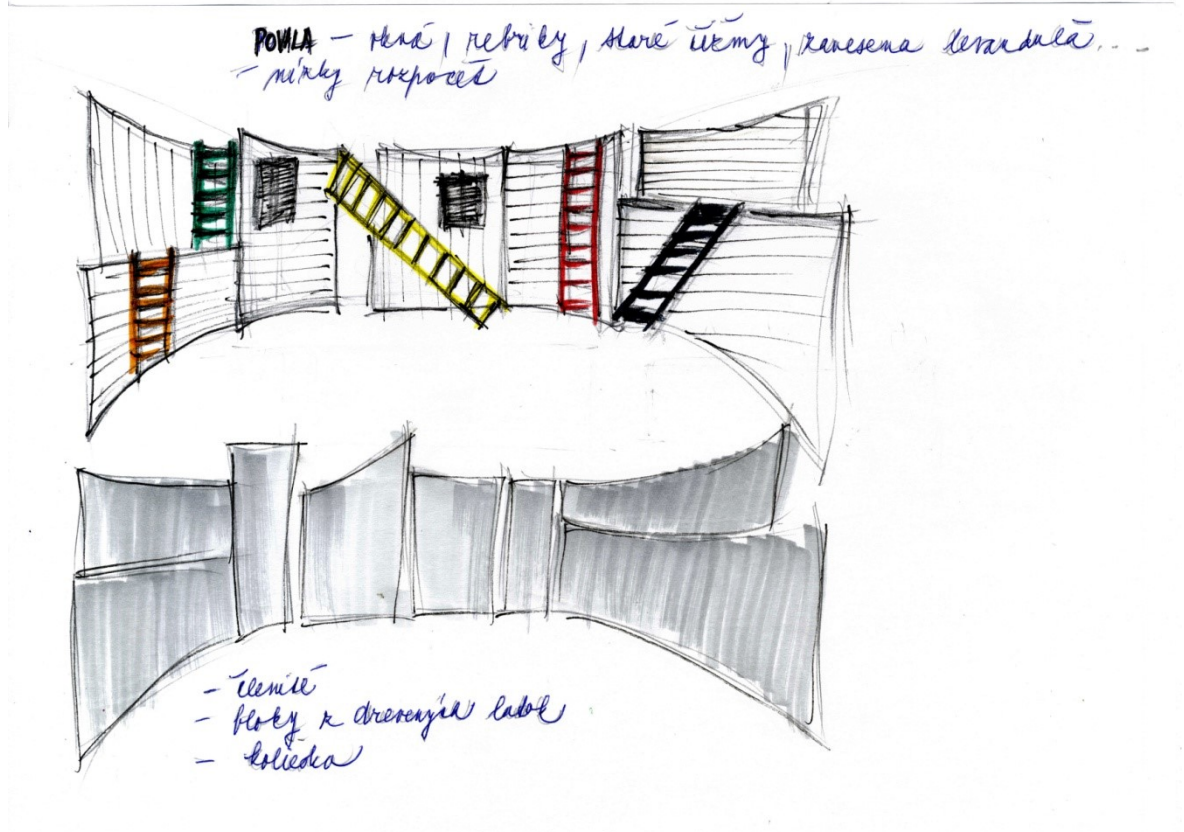 POVALA – okná, rebríky, staré čižmy, zavesená levanduľa...
– nízky rozpočet
– členité
– bloky z drevených latok
– kolieska